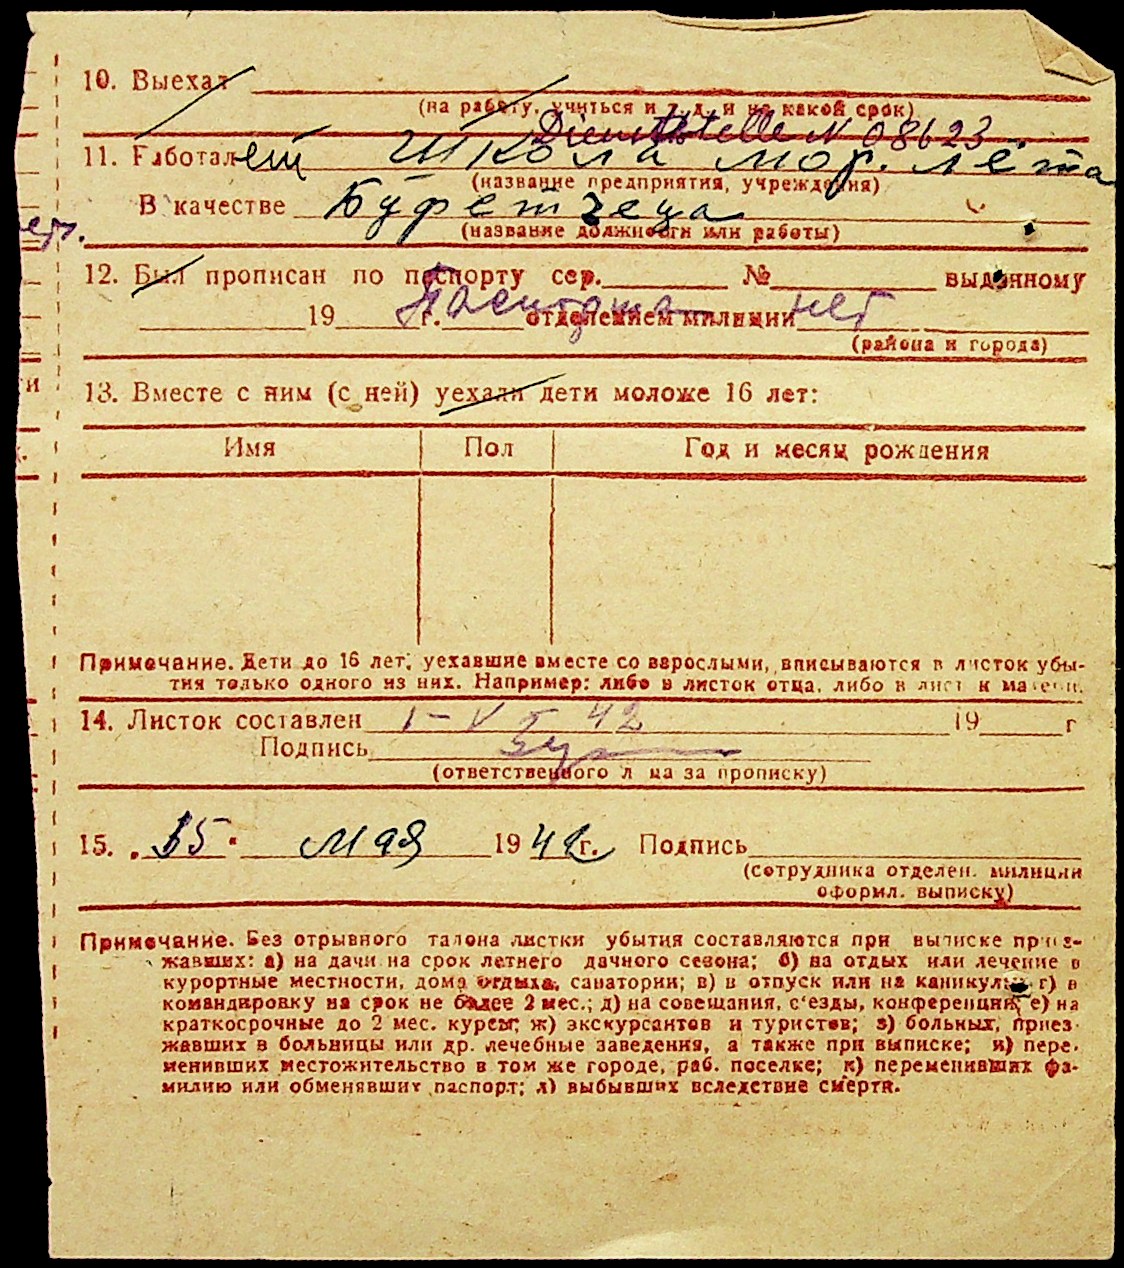 10. Выехал
(на работу, учиться и т. д. и на какой срок)
Dienststelle N 08623.
11. Работал ет Школа мор. лёта
(название предприятия, учреждения)
В качестве Буфетчеца
(название должности или работы)
ер.
12. Был прописан по паспорту сер. № выданному
19 г. отделением милиции
Паспорта нет
(района и города)
13. Вместе с ним (с ней) уехали дети моложе 16 лет:
и
Имя Пол Год и месяц рождения
Примечание. Дети до 16 лет, уехавшие вместе со взрослыми, вписываются в листок убы-
тия только одного из них. Например: либо в листок отца, либо в листок матери.
14. Листок составлен 1-V 42 19 г
Подпись
(ответственного лица за прописку)
15. „15" мая 1942 г. Подпись
(сотрудника отделен. милиции
оформл. выписку)
Примечание. Без отрывного талона листки убытия составляются при выписке приез-
жавших: а) на дачи на срок летнего дачного сезона; б) на отдых или лечение в
курортные местности, дома отдыха, санатории; в) в отпуск или на каникулы; г) в
командировку на срок не более 2 мес.; д) на совещания, с'езды, конференции; е) на
краткосрочные до 2 мес. курсы; ж) экскурсантов и туристов; з) больных, приез-
жавших в больницы или др. лечебные заведения, а также при выписке; и) пере-
менивших местожительство в том же городе, раб. поселке; к) переменивших фа-
милию или обменявших паспорт; л) выбывших вследствие смерти.